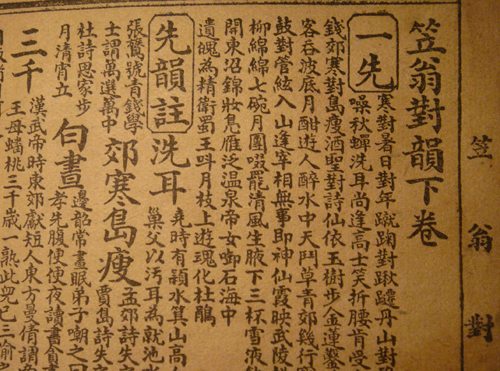 笠翁對
笠翁對韻下卷
一先
寒對暑日對年蹴踘對鞦韆丹山對
噪秋蟬洗耳尚逢高士笑折腰肯受
錢郊寒對島瘦酒聖對詩仙依玉樹步金蓮鑿
客吞波底月酣遊人醉水中天鬥草青郊幾行
鼓對管絃入山逢宰相無事即神仙霞映武陵
柳綿綿七碗月團啜罷清風生腋下三杯雪液
開東沼錦妝鳧雁泛溫泉帝女啣石海中
遺魄為精衛蜀王叫月枝上遊魂化杜鵑
先韻註
洗耳
堯時有潁水箕山高
巢父以汚耳為就池
張鷟號青錢學
士謂萬選萬中
郊寒島瘦
孟郊詩失之
賈島詩失
杜詩思家步
月清宵立
白晝
邊韶常晝眠弟子嘲之曰
孝先腹便便夜讀書
三千
漢武帝時東郡獻短人東方曼倩謂
王母蟠桃三千歲一熟此兒已三偷之